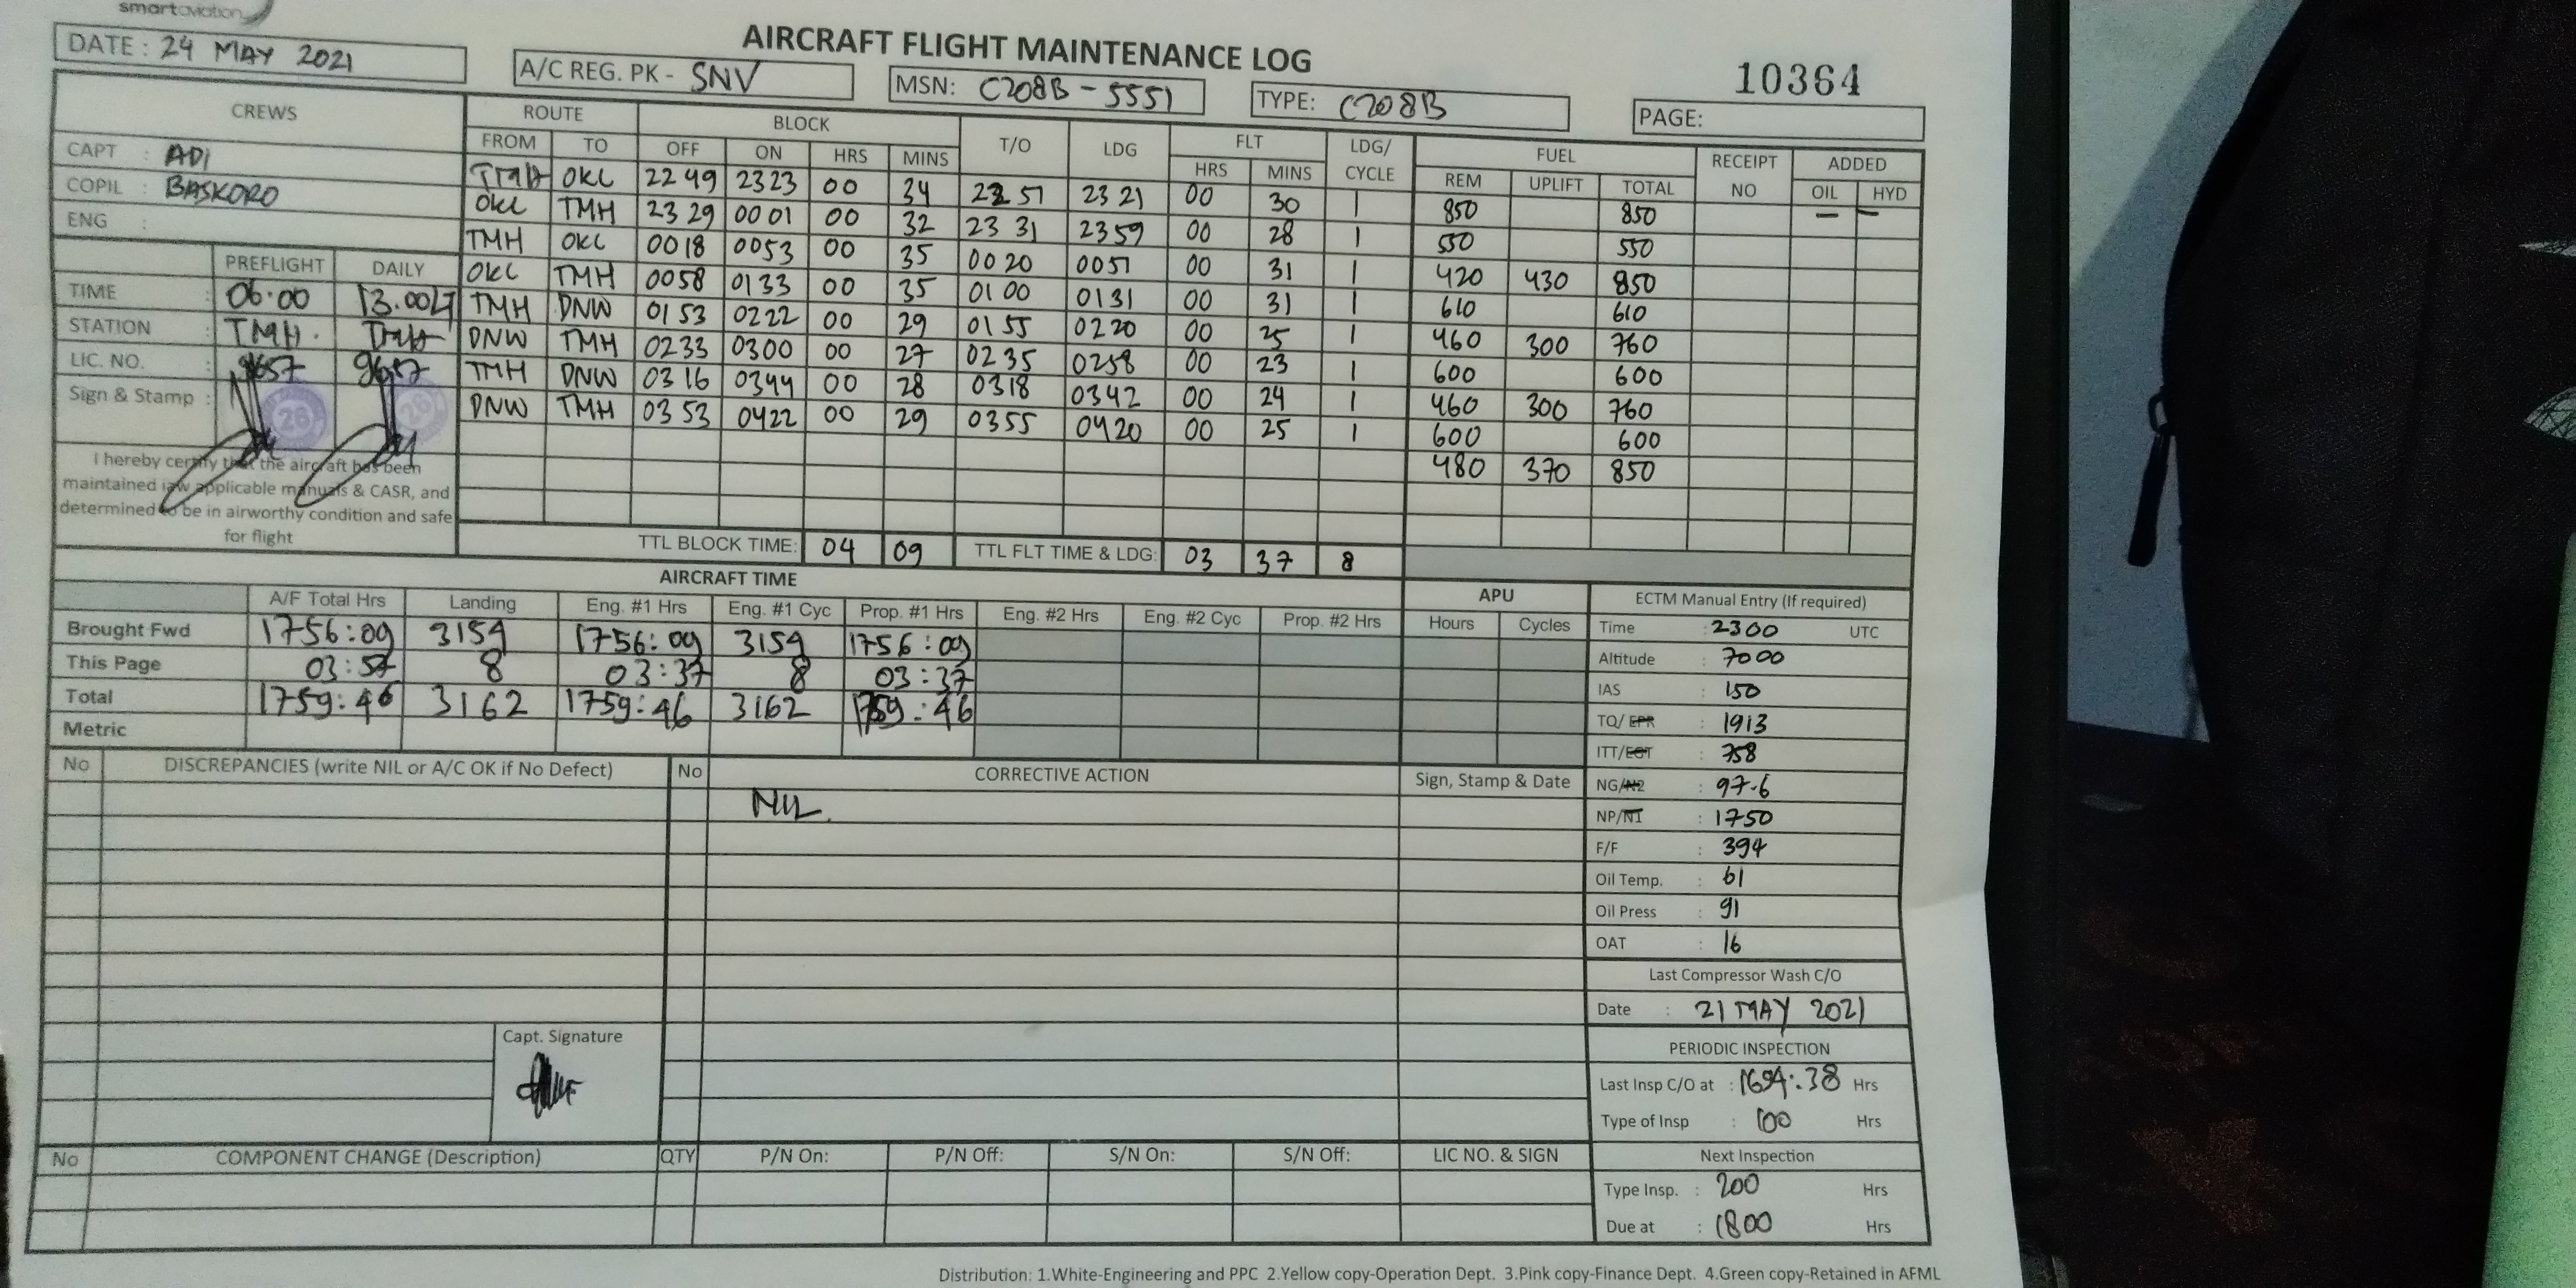 smartaviation
AIRCRAFT FLIGHT MAINTENANCE LOG
10364
DATE : 24 MAY 2021
A/C REG. PK - SNV
MSN: C208B - 5551
TYPE: C208B
PAGE:
CREWS
CAPT : ADI
COPIL : BASKORO
ENG :
PREFLIGHT DAILY
TIME : 06.00 13.00
STATION : TMH. TMH
LIC. NO. : 9657 9657
Sign & Stamp :
26 26
I hereby certify that the aircraft has been
maintained iaw applicable manuals & CASR, and
determined to be in airworthy condition and safe
for flight
ROUTE BLOCK T/O LDG FLT LDG/ CYCLE FUEL RECEIPT NO ADDED
FROM TO OFF ON HRS MINS HRS MINS REM UPLIFT TOTAL OIL HYD
TMH OKL 2249 2323 00 34 2251 2321 00 30 1 850 850 — —
OKL TMH 2329 0001 00 32 2331 2359 00 28 1 550 550
TMH OKL 0018 0053 00 35 0020 0051 00 31 1 420 430 850
OKL TMH 0058 0133 00 35 0100 0131 00 31 1 610 610
TMH DNW 0153 0222 00 29 0155 0220 00 25 1 460 300 760
DNW TMH 0233 0300 00 27 0235 0258 00 23 1 600 600
TMH DNW 0316 0344 00 28 0318 0342 00 24 1 460 300 760
DNW TMH 0353 0422 00 29 0355 0420 00 25 1 600 600
480 370 850
TTL BLOCK TIME: 04 09 TTL FLT TIME & LDG: 03 37 8
AIRCRAFT TIME
A/F Total Hrs Landing Eng. #1 Hrs Eng. #1 Cyc Prop. #1 Hrs Eng. #2 Hrs Eng. #2 Cyc Prop. #2 Hrs
Brought Fwd 1756:09 3154 1756:09 3154 1756:09
This Page 8 03:37 8 03:37
Total 1759:46 3162 1759:46 3162 1759:46
Metric
APU
Hours Cycles
ECTM Manual Entry (If required)
Time : 2300 UTC
Altitude : 7000
IAS : 150
TQ/ EPR : 1913
ITT/EGT : 758
NG/N2 : 97.6
NP/N1 : 1750
F/F : 394
Oil Temp. : 61
Oil Press : 91
OAT : 16
Last Compressor Wash C/O
Date : 21 MAY 2021
PERIODIC INSPECTION
Last Insp C/O at : 1694:38 Hrs
Type of Insp : 100 Hrs
Next Inspection
Type Insp. : 200 Hrs
Due at : 1800 Hrs
No DISCREPANCIES (write NIL or A/C OK if No Defect) No CORRECTIVE ACTION Sign, Stamp & Date
NIL.
Capt. Signature
No COMPONENT CHANGE (Description) QTY P/N On: P/N Off: S/N On: S/N Off: LIC NO. & SIGN
Distribution: 1.White-Engineering and PPC 2.Yellow copy-Operation Dept. 3.Pink copy-Finance Dept. 4.Green copy-Retained in AFML